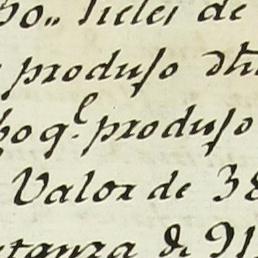 po,, Pieles de
produso dh
po q.e produso
Valor de 38
tanza de 91